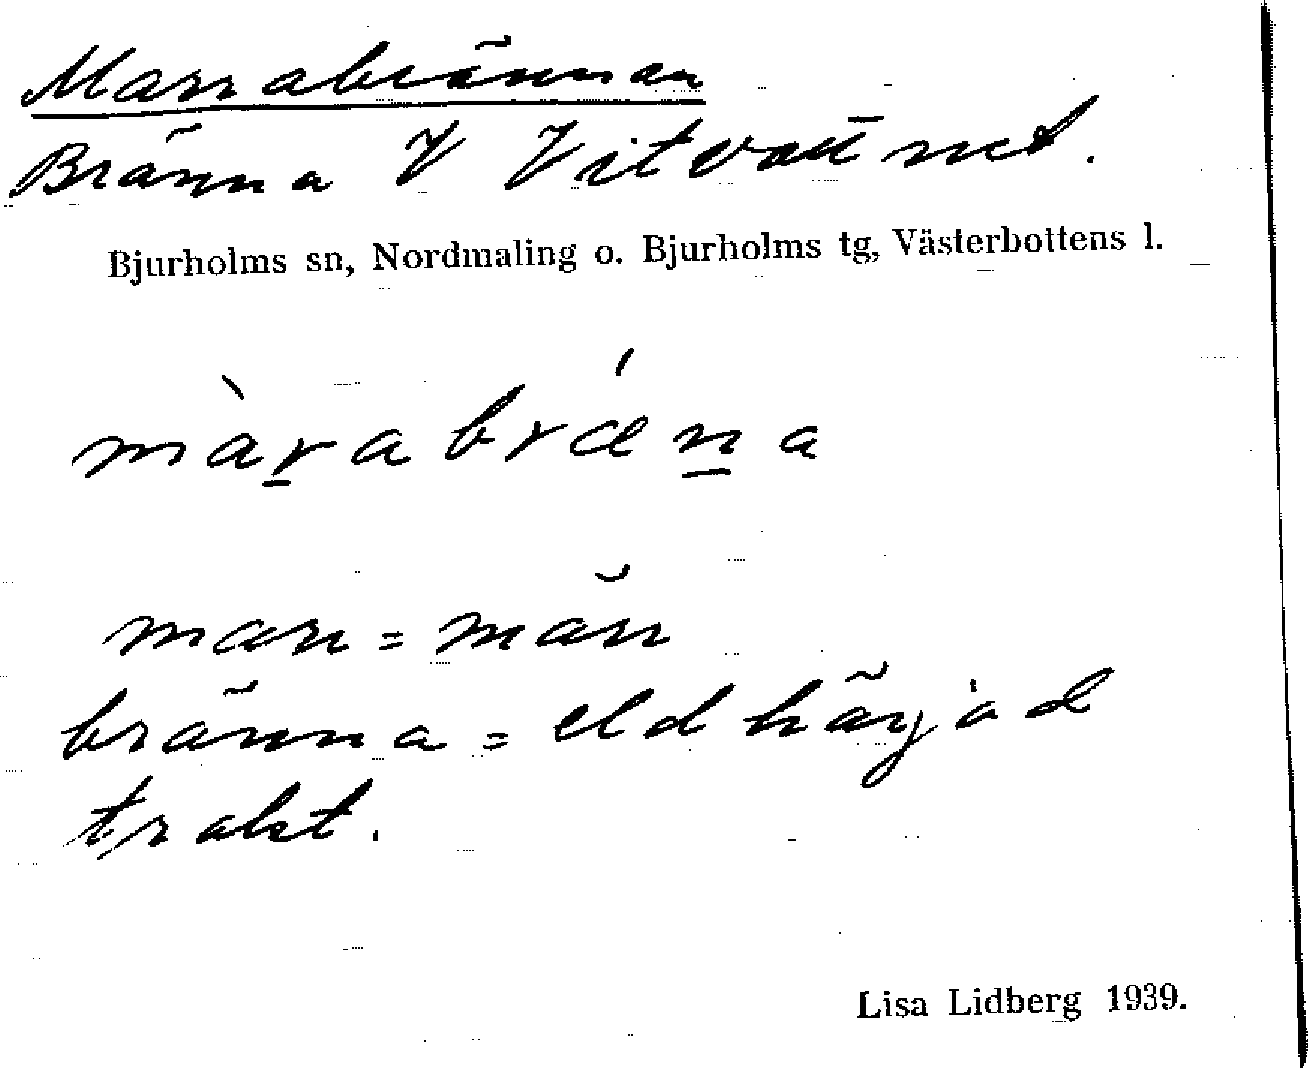 Marrabrännan
Bränna V Vitvattnet.
Bjurholms sn, Nordmaling o. Bjurholms tg, Västerbottens l.
màr̲abrǽn̲a
marr = märr
bränna = eldhärjad
trakt.
Lisa Lidberg 1939.